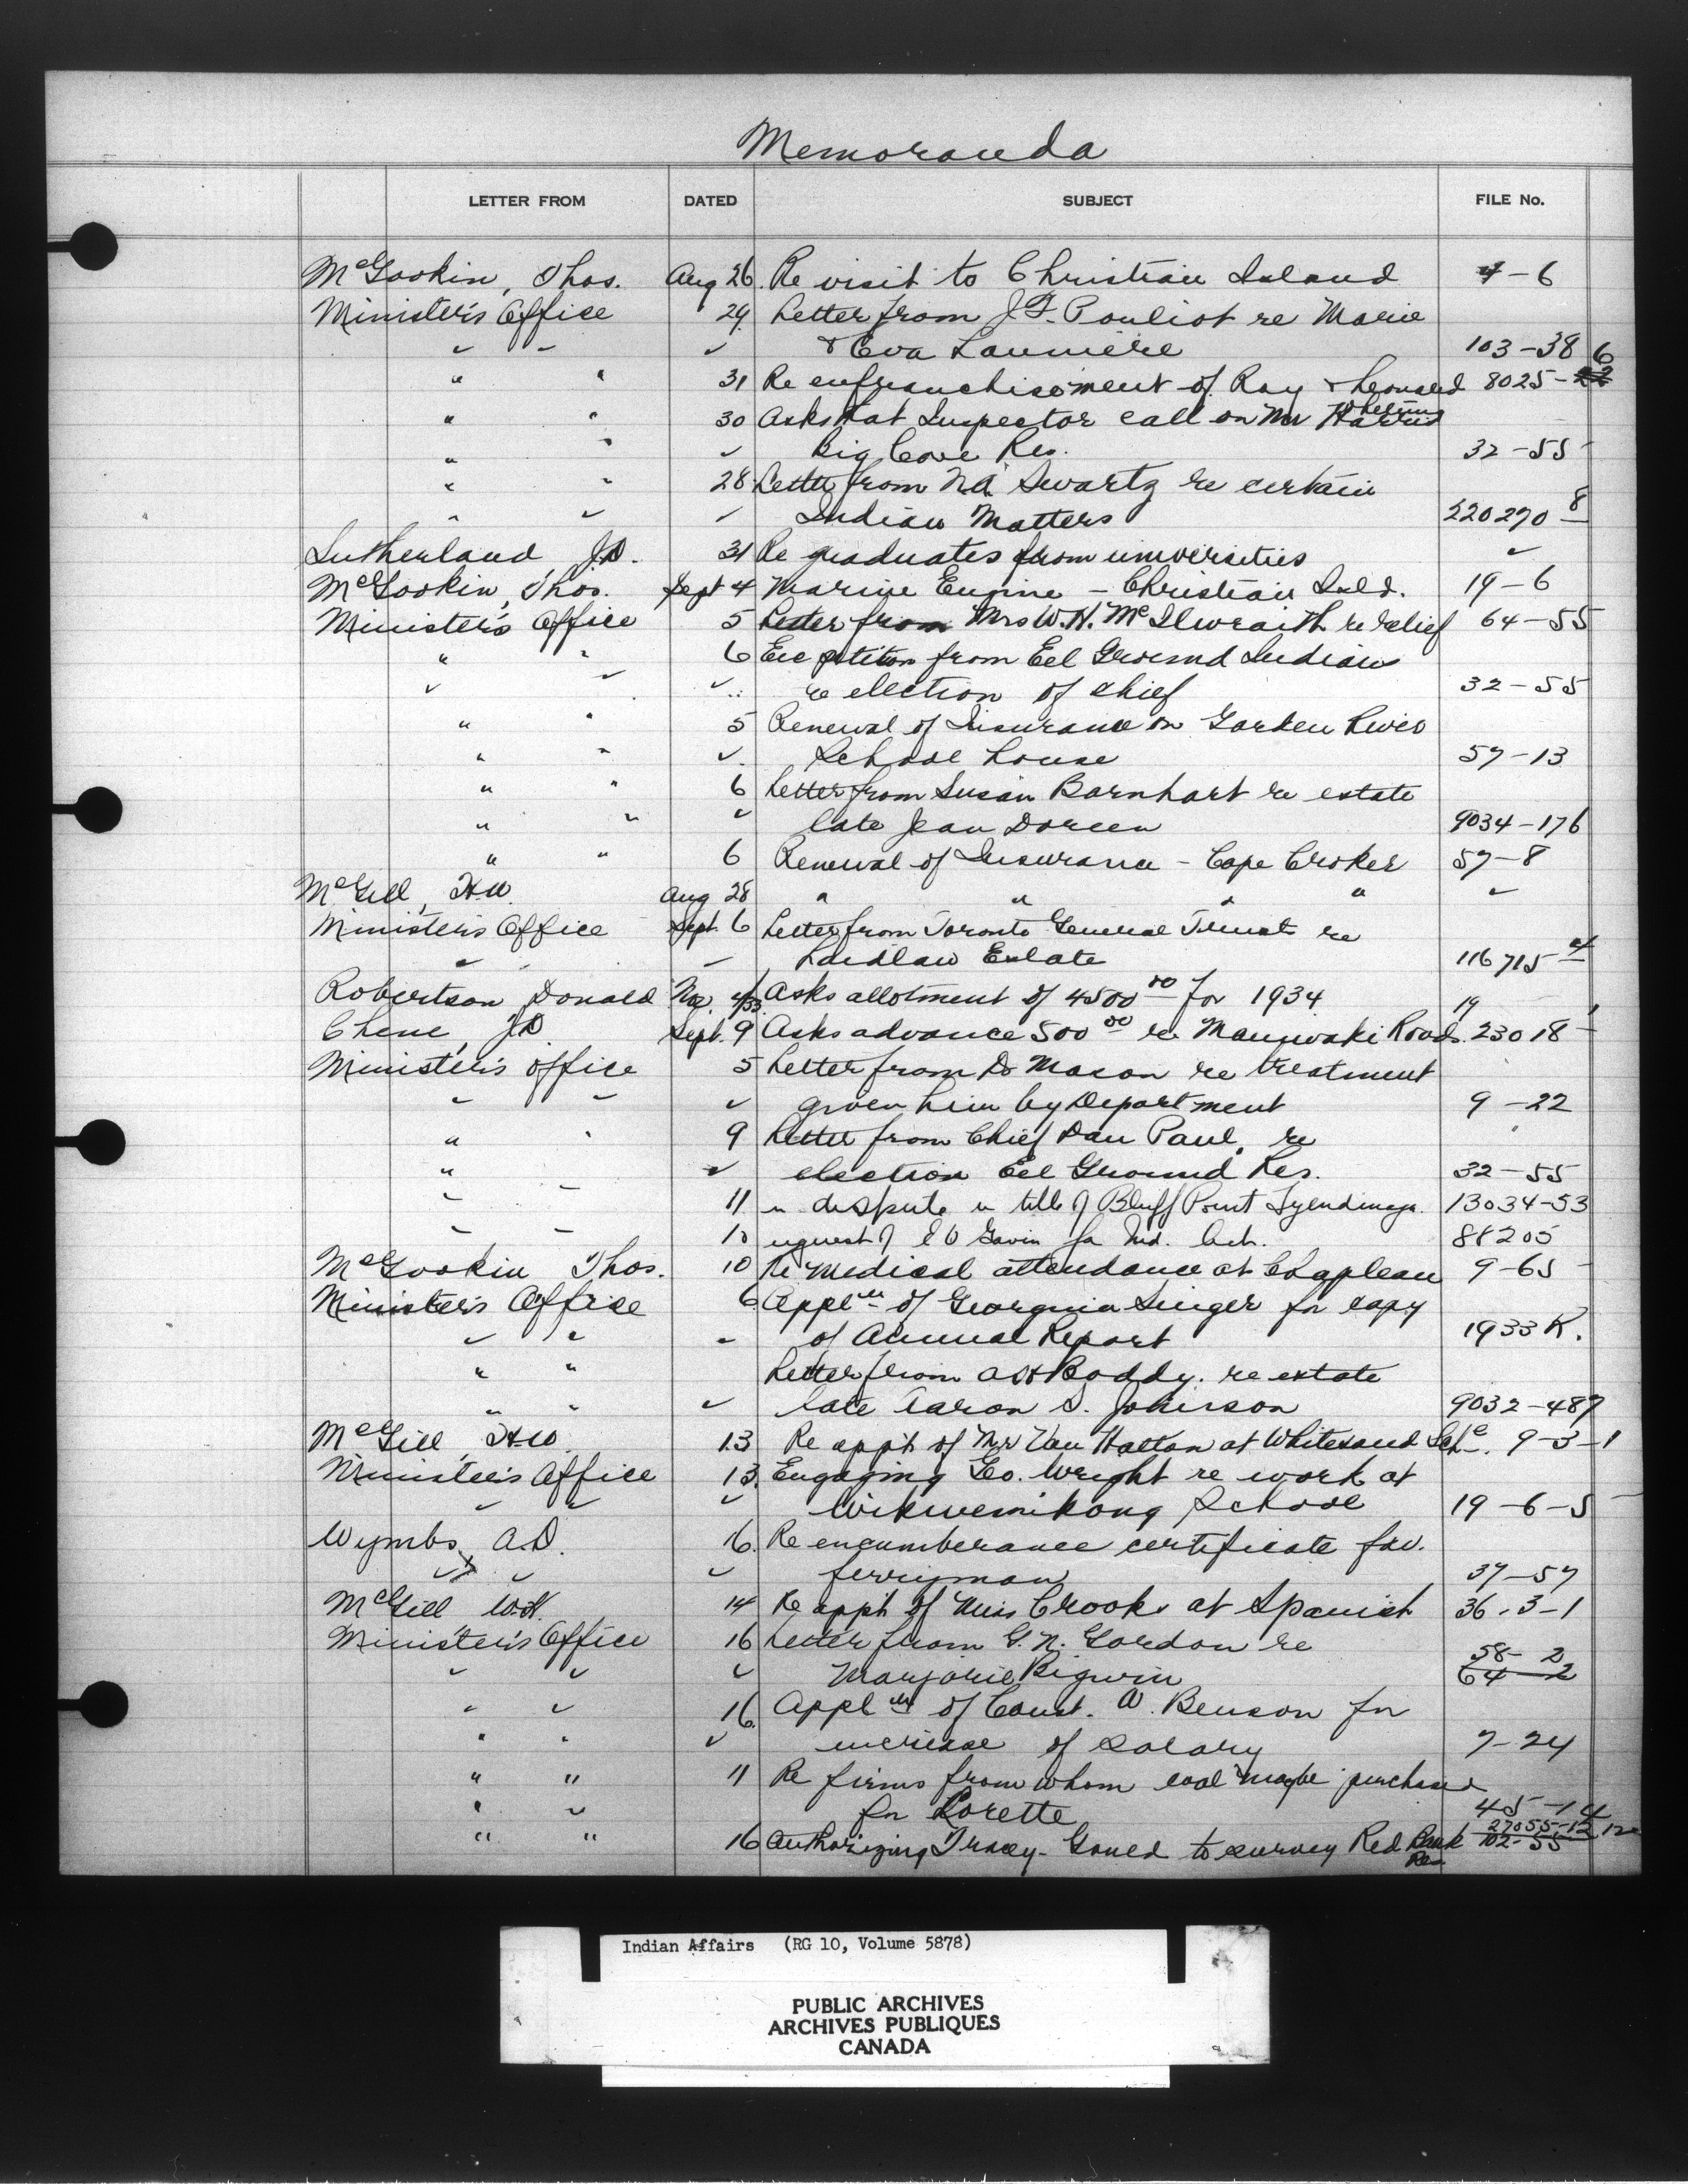 Memoranda
LETTER FROM DATED SUBJECT FILE No.
McGookin, Thos. Aug 26. Re visit to Christian Island 4-6
Minister's Office 29. Letter from J.F. Pouliot re Marie
" " " & Eva Laumiere 103-38
" " 31 Re enfranchisement of Ray & Leonard 8025-22 6
" " 30 Asks that Inspector call on Mr Harris
" " " Big Cove Res. 32-55
" " 28 Letter from N.A. Swartz re certain
" " " Indian Matters 220270 8
Sutherland, J.D. 31 Re graduates from universities "
McGookin, Thos. Sept 4 Marine Engine - Christian Isld. 19-6
Minister's Office 5 Letter from Mrs W.H. McIlwraith re relief 64-55
" " 6 Enc petition from Eel Ground Indians
" " " re election of chief 32-55
" " 5 Renewal of Insurance on Garden River
" " " School house 57-13
" " 6 Letter from Susan Barnhart re estate
" " " late Jean Doreen 9034-176
" " 6 Renewal of Insurance - Cape Croker 57-8
McGill, H.W. Aug 28 " " " " "
Minister's Office Sept. 6 Letter from Toronto General Trusts re
" " Laidlaw Estate 116715 4
Robertson, Donald 4/33 Asks allotment of 4500 00 for 1934 19
Chene, J.D. Sept. 9 Asks advance 500 00 re Maniwaki Roads. 23018
Minister's Office 5 Letter from D. Mason re treatment
" " " given him by Department 9-22
" " 9 Letter from Chief Dan Paul, re
" " " election Eel Ground Res. 32-55
" " 11 re dispute re title of Bluff Point Tyendinaga. 13034-53
" " 10 request of E O Gavin for Ind. Act. 88205
McGookin Thos. 10 Re Medical attendance at Chapleau 9-65
Minister's Office 6 Appl'n of Georgina Singer for copy
" " " of Annual Report 1933 K.
" " Letter from A H Boddy. re estate
" " " late Aaron S. Johnson 9032-487
McGill, H.W. 13 Re app't of Mr Van Hatton at Whitesand Schl. 9-3-1
Minister's Office 13. Engaging Geo. Wright re work at
" " " Wikwemikong School 19-6-5
Wymbs, A.D. 16. Re encumberance certificate fav.
" " " ferryman 37-57
McGill, W.H. 14 Re app't of Miss Crooks at Spanish 36-3-1
Minister's Office 16 Letter from G.N. Gordon re 58-2
" " " Marjorie Bigwin 64-2
" " 16. Appl'n of Const. W. Benson for
" " " increase of salary 7-24
" " 11 Re firms from whom coal maybe purchased
" " for Lorette 45-14
" " 16 Authorizing Tracy Gould to survey Red Bank Res. 27055-12 102-55
Indian Affairs (RG 10, Volume 5878)
PUBLIC ARCHIVES
ARCHIVES PUBLIQUES
CANADA